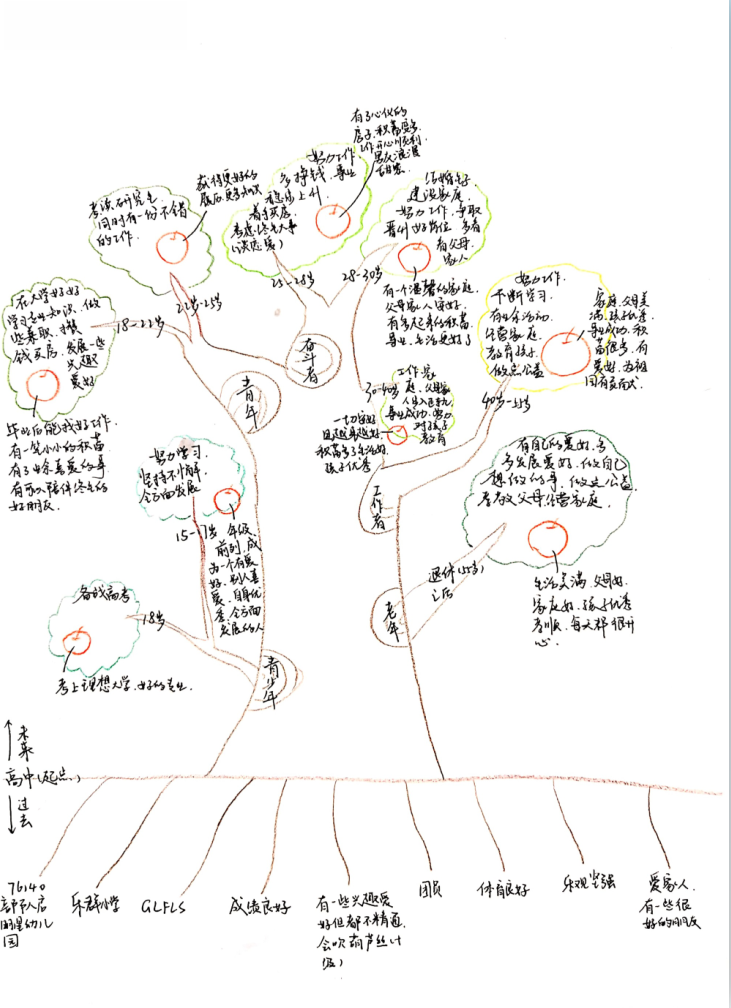 有了心仪的
房子,积蓄更多,
工作开心顺利
男友浪漫
努力工作
多挣钱,专业
稳步上升
看房买房,
考虑终生大事
(谈恋爱)
获得更好的
考读研究生
同时有一份不错
的工作.
结婚生子
建设家庭
努力工作,争取
晋升好岗位 多看
看父母.
家人
25-28岁
28-30岁
22岁-25岁
18-22岁
在大学好好
学习专业知识,做
些兼职,攒
钱买房,发展一些
兴趣
爱好
有一个温馨的家庭
父母家人安好,
努力工作.
不断学习.
经营家庭.
教育孩子
做点公益
家庭,父母美
满,孩子优秀
事业成功,积
蓄很多,有
爱好,为祖
国有贡献
奋斗者
青年
毕业后能找好工作.
有一笔小小的积蓄
有了业余喜爱的事
有可以陪伴终生的
好朋友
30-40岁
40岁-55岁
工作,家
庭,父母家
事业成功,努力
对孩子
教育
一切安好
孩子优秀
努力学习
坚持不懈
全方面发展
15-17岁
年级
前列,成
为一个有爱
好,别人喜
爱,自身优
秀,全方面
发展的人
工作者
有自己的爱好,多
多发展爱好,做自己
想做的事,做点公益
孝敬父母,经营家庭.
退休(55岁)
之后
老年
生活美满,父母好.
家庭好,孩子优秀
孝顺,每天都很开
心.
备战高考
18岁
考上理想大学,好的专业.
青少年
未来
高中(起点)
过去
幼儿
园
乐群小学
GLFLS
成绩良好
有一些兴趣爱
好但都不精通
会吹葫芦丝(十
级)
团员
体育良好
乐观坚强
爱家人.
有一些很
好的朋友